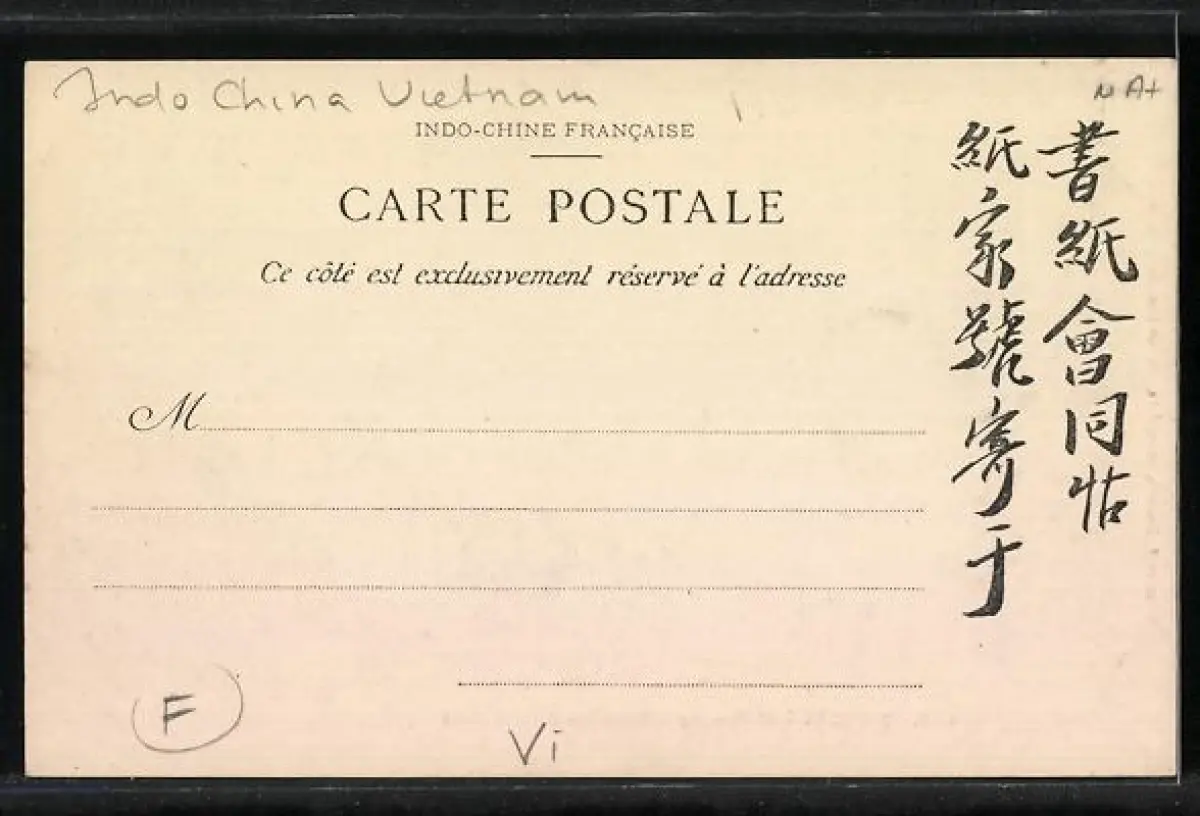 Indo China Vietnam
N A+
INDO-CHINE FRANÇAISE
CARTE POSTALE
Ce côté est exclusivement réservé à l'adresse
M
書紙會同帖
紙家號寄于
F
Vi